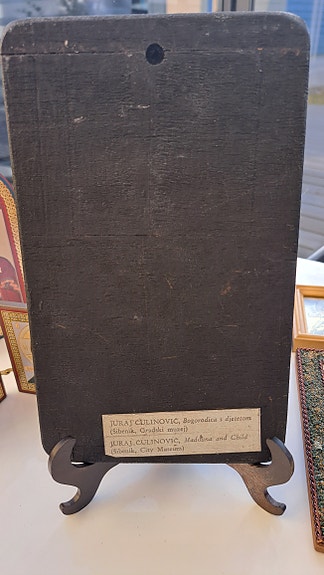 JURAJ ČULINOVIĆ, Bogorodica s djetetom
(Šibenik, Gradski muzej)
JURAJ ČULINOVIĆ, Madonna and Child
(Šibenik, City Museum)